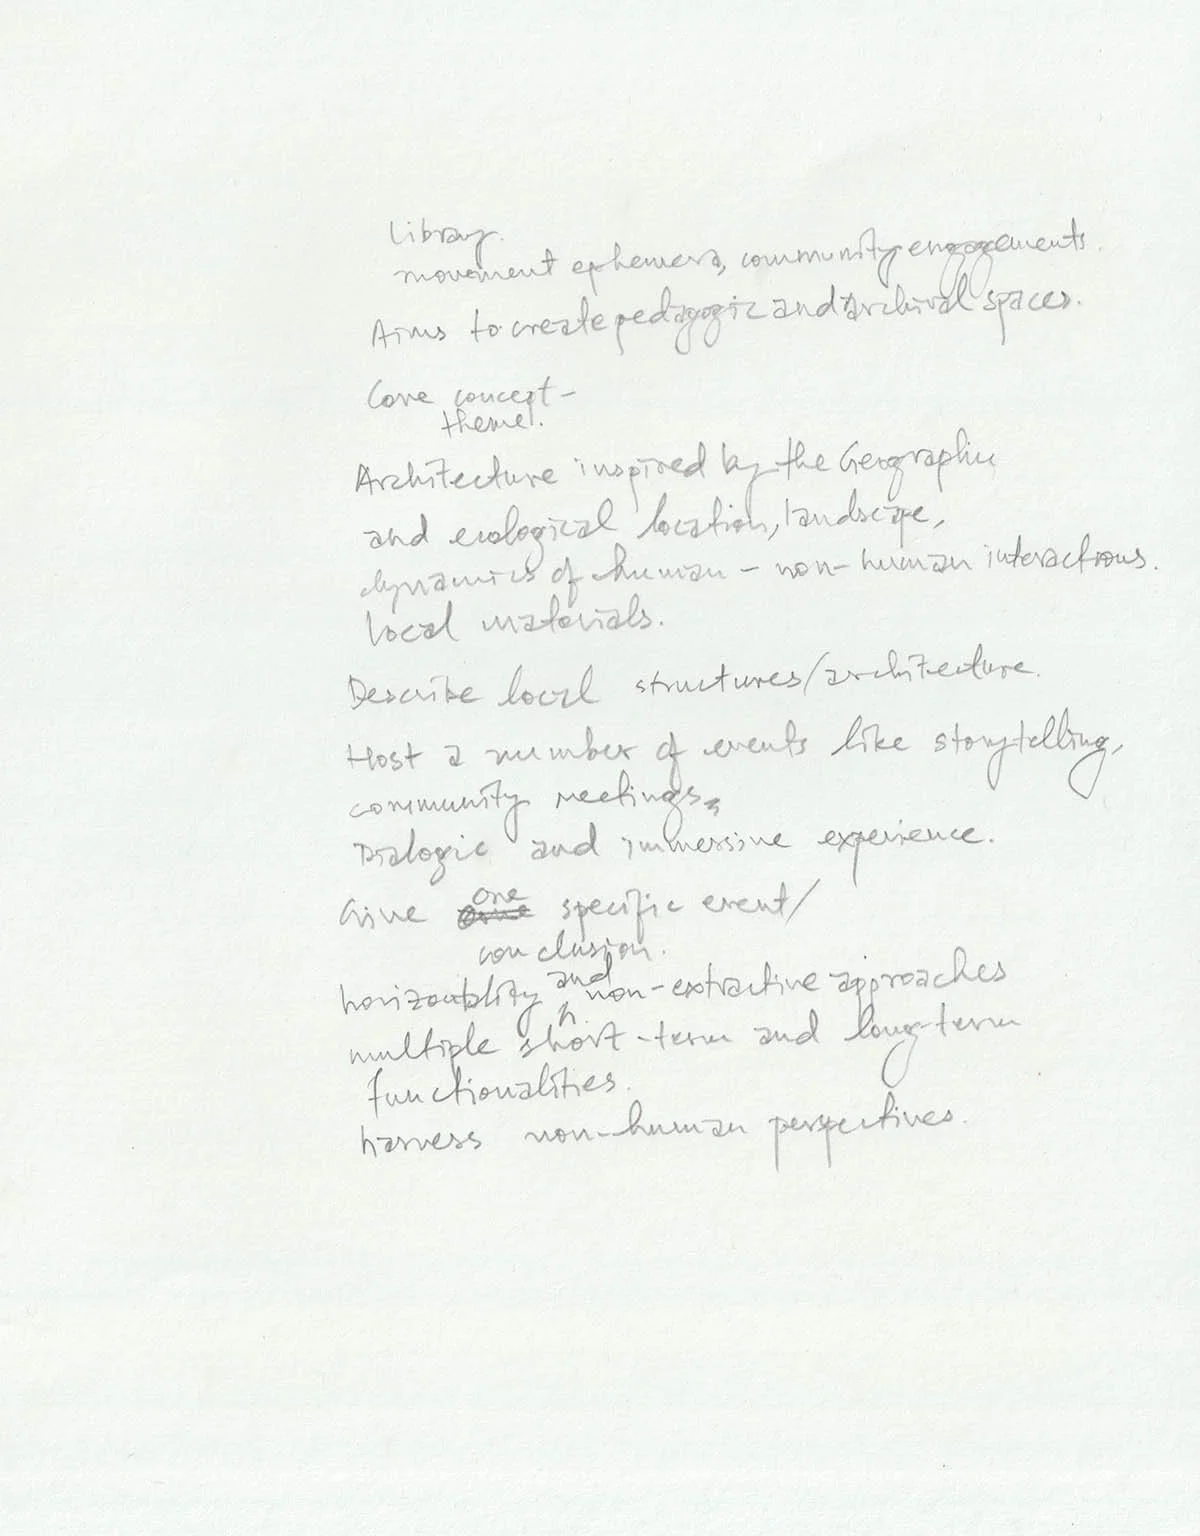 Library.
movement ephemera, community engagements.
Aims to create pedagogic and archival spaces.
Core concept -
theme.
Architecture inspired by the Geographic
and ecological location, landscape,
dynamics of human - non-human interactions.
Local materials.
Describe local structures/architecture.
Host a number of events like storytelling,
community meetings,
Dialogic and immersive experience.
Give one specific event/
conclusion.
horizontality and non-extractive approaches
multiple short-term and long-term
functionalities.
harness non-human perspectives.